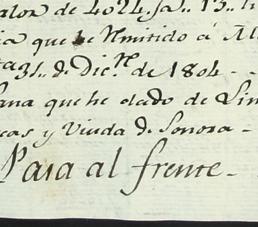 alor de 4024. fa.. 13.. li
ia que he Remitido á Al
tag 31.. de Dic.re de 1804 - -
ana que he dado de Lim
cas y Viuda de Sonora -
Pasa al frente -